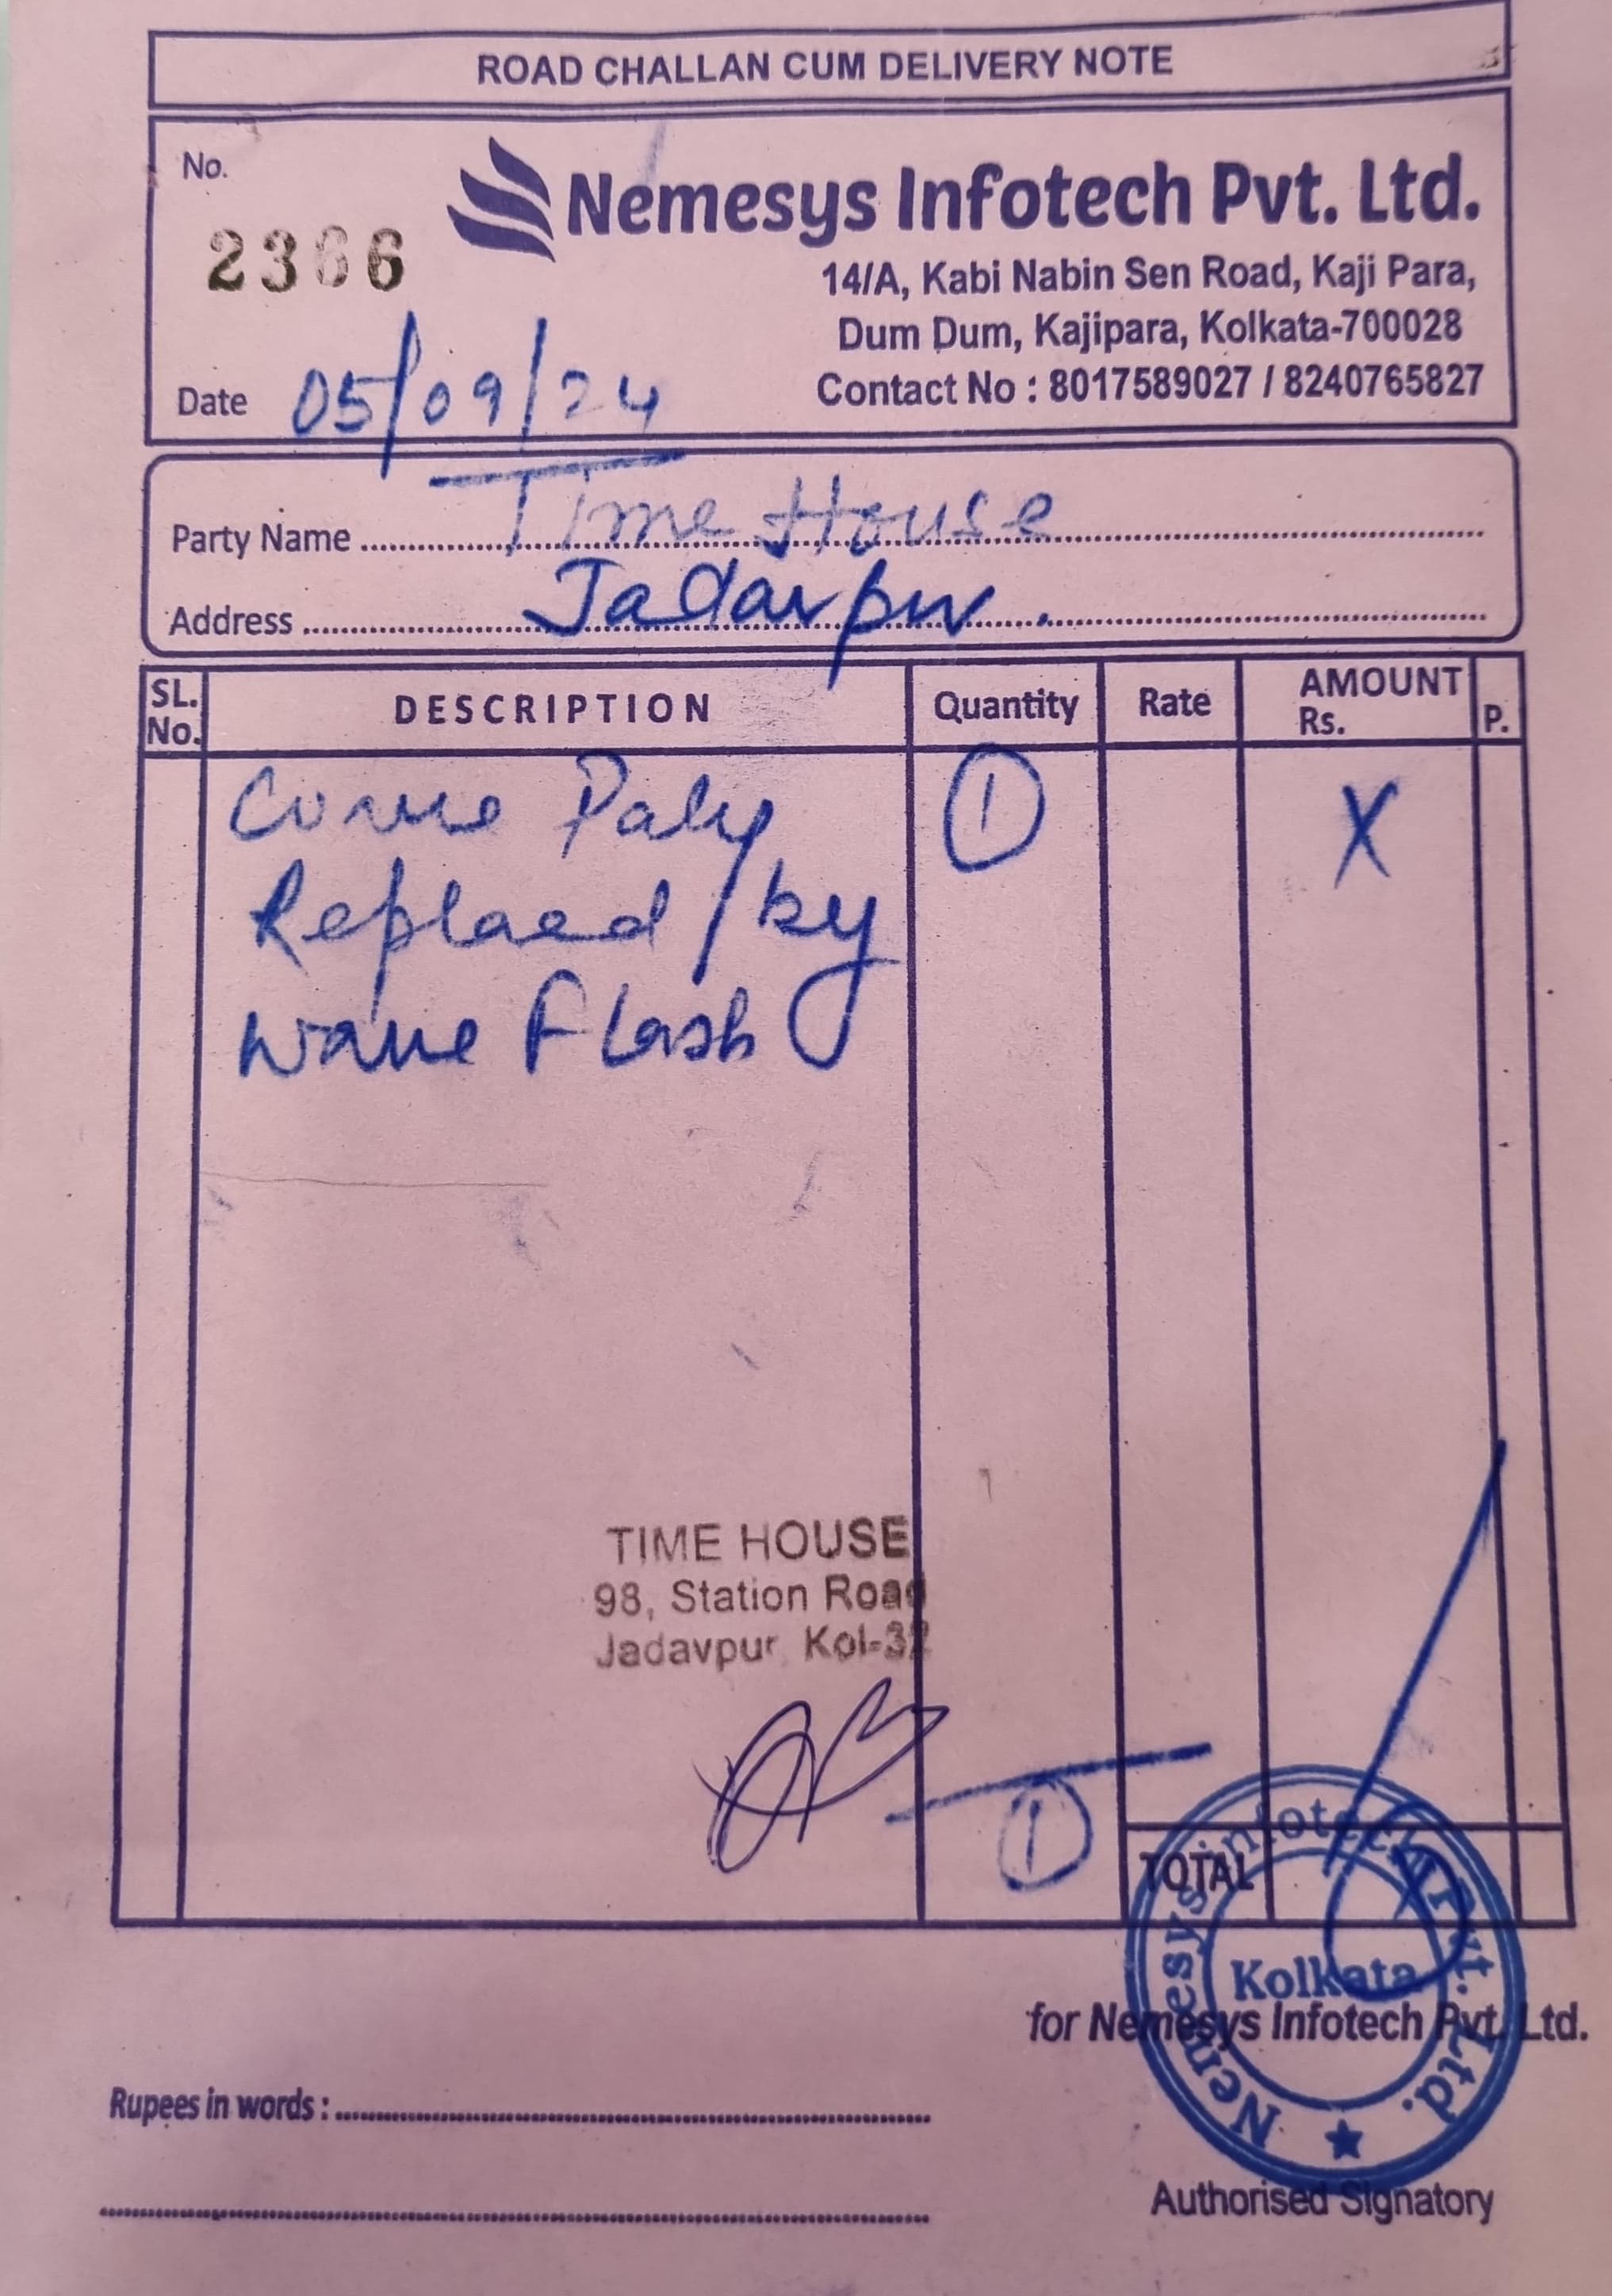 ROAD CHALLAN CUM DELIVERY NOTE
No.
2366
Nemesys Infotech Pvt. Ltd.
14/A, Kabi Nabin Sen Road, Kaji Para,
Dum Dum, Kajipara, Kolkata-700028
Contact No : 8017589027 / 8240765827
Date 05/09/24
Party Name Time House
Address Jadavpur
SL. No. DESCRIPTION Quantity Rate AMOUNT Rs. P.
1 X
Replaced / by
Flash
TIME HOUSE
98, Station Road
Jadavpur, Kol-32
1
TOTAL X
Nemesys Infotech Pvt. Ltd.
Kolkata
for Nemesys Infotech Pvt. Ltd.
Rupees in words :
Authorised Signatory